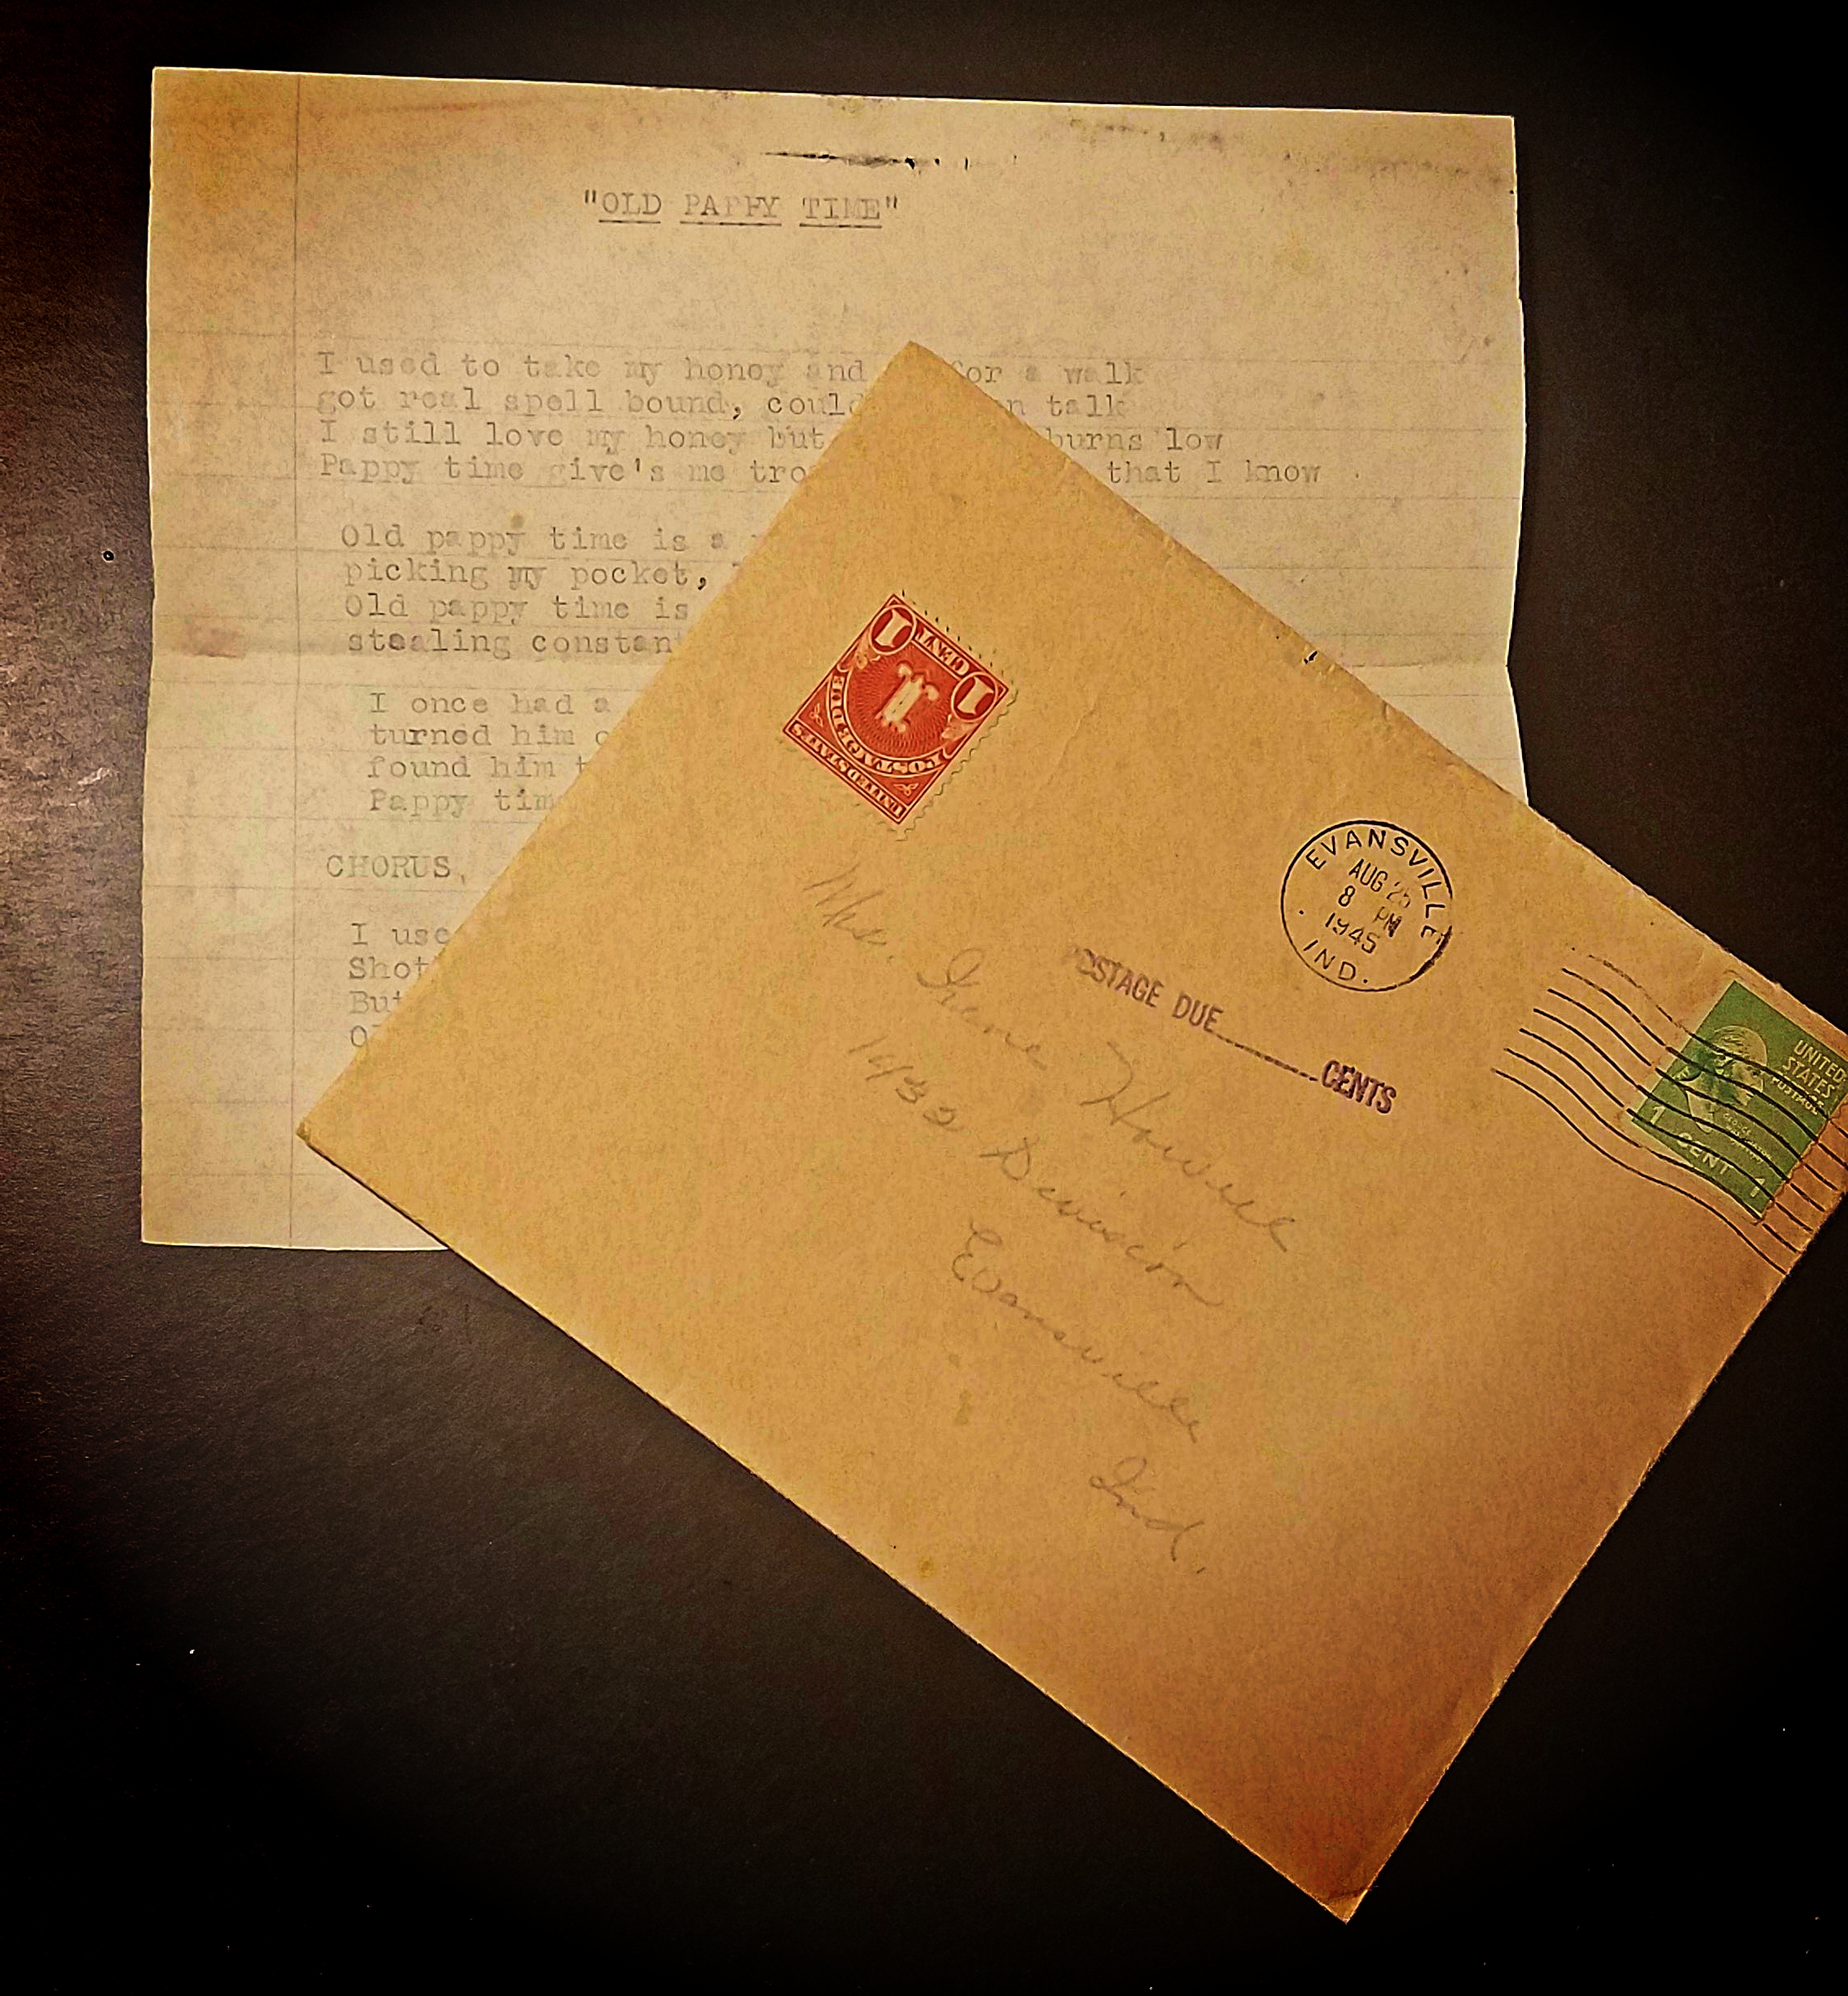 "OLD PAPPY TIME"
I used to take my honey and for a walk
got real spell bound, could talk
I still love my honey but burns low
Pappy time give's me tro that I know
Old pappy time is a
picking my pocket,
Old pappy time is
stealing constan
I once had a
turned him
found him
Pappy tim
CHORUS,
I use
Shot
But
UNITED STATES
POSTAGE DUE
1 CENT 1
1
EVANSVILLE
AUG 25
8 PM
1945
IND.
POSTAGE DUE CENTS
UNITED
STATES
POSTAGE
1 CENT 1
Mrs. Irene Howell
1432 Division
Evansville
Ind.